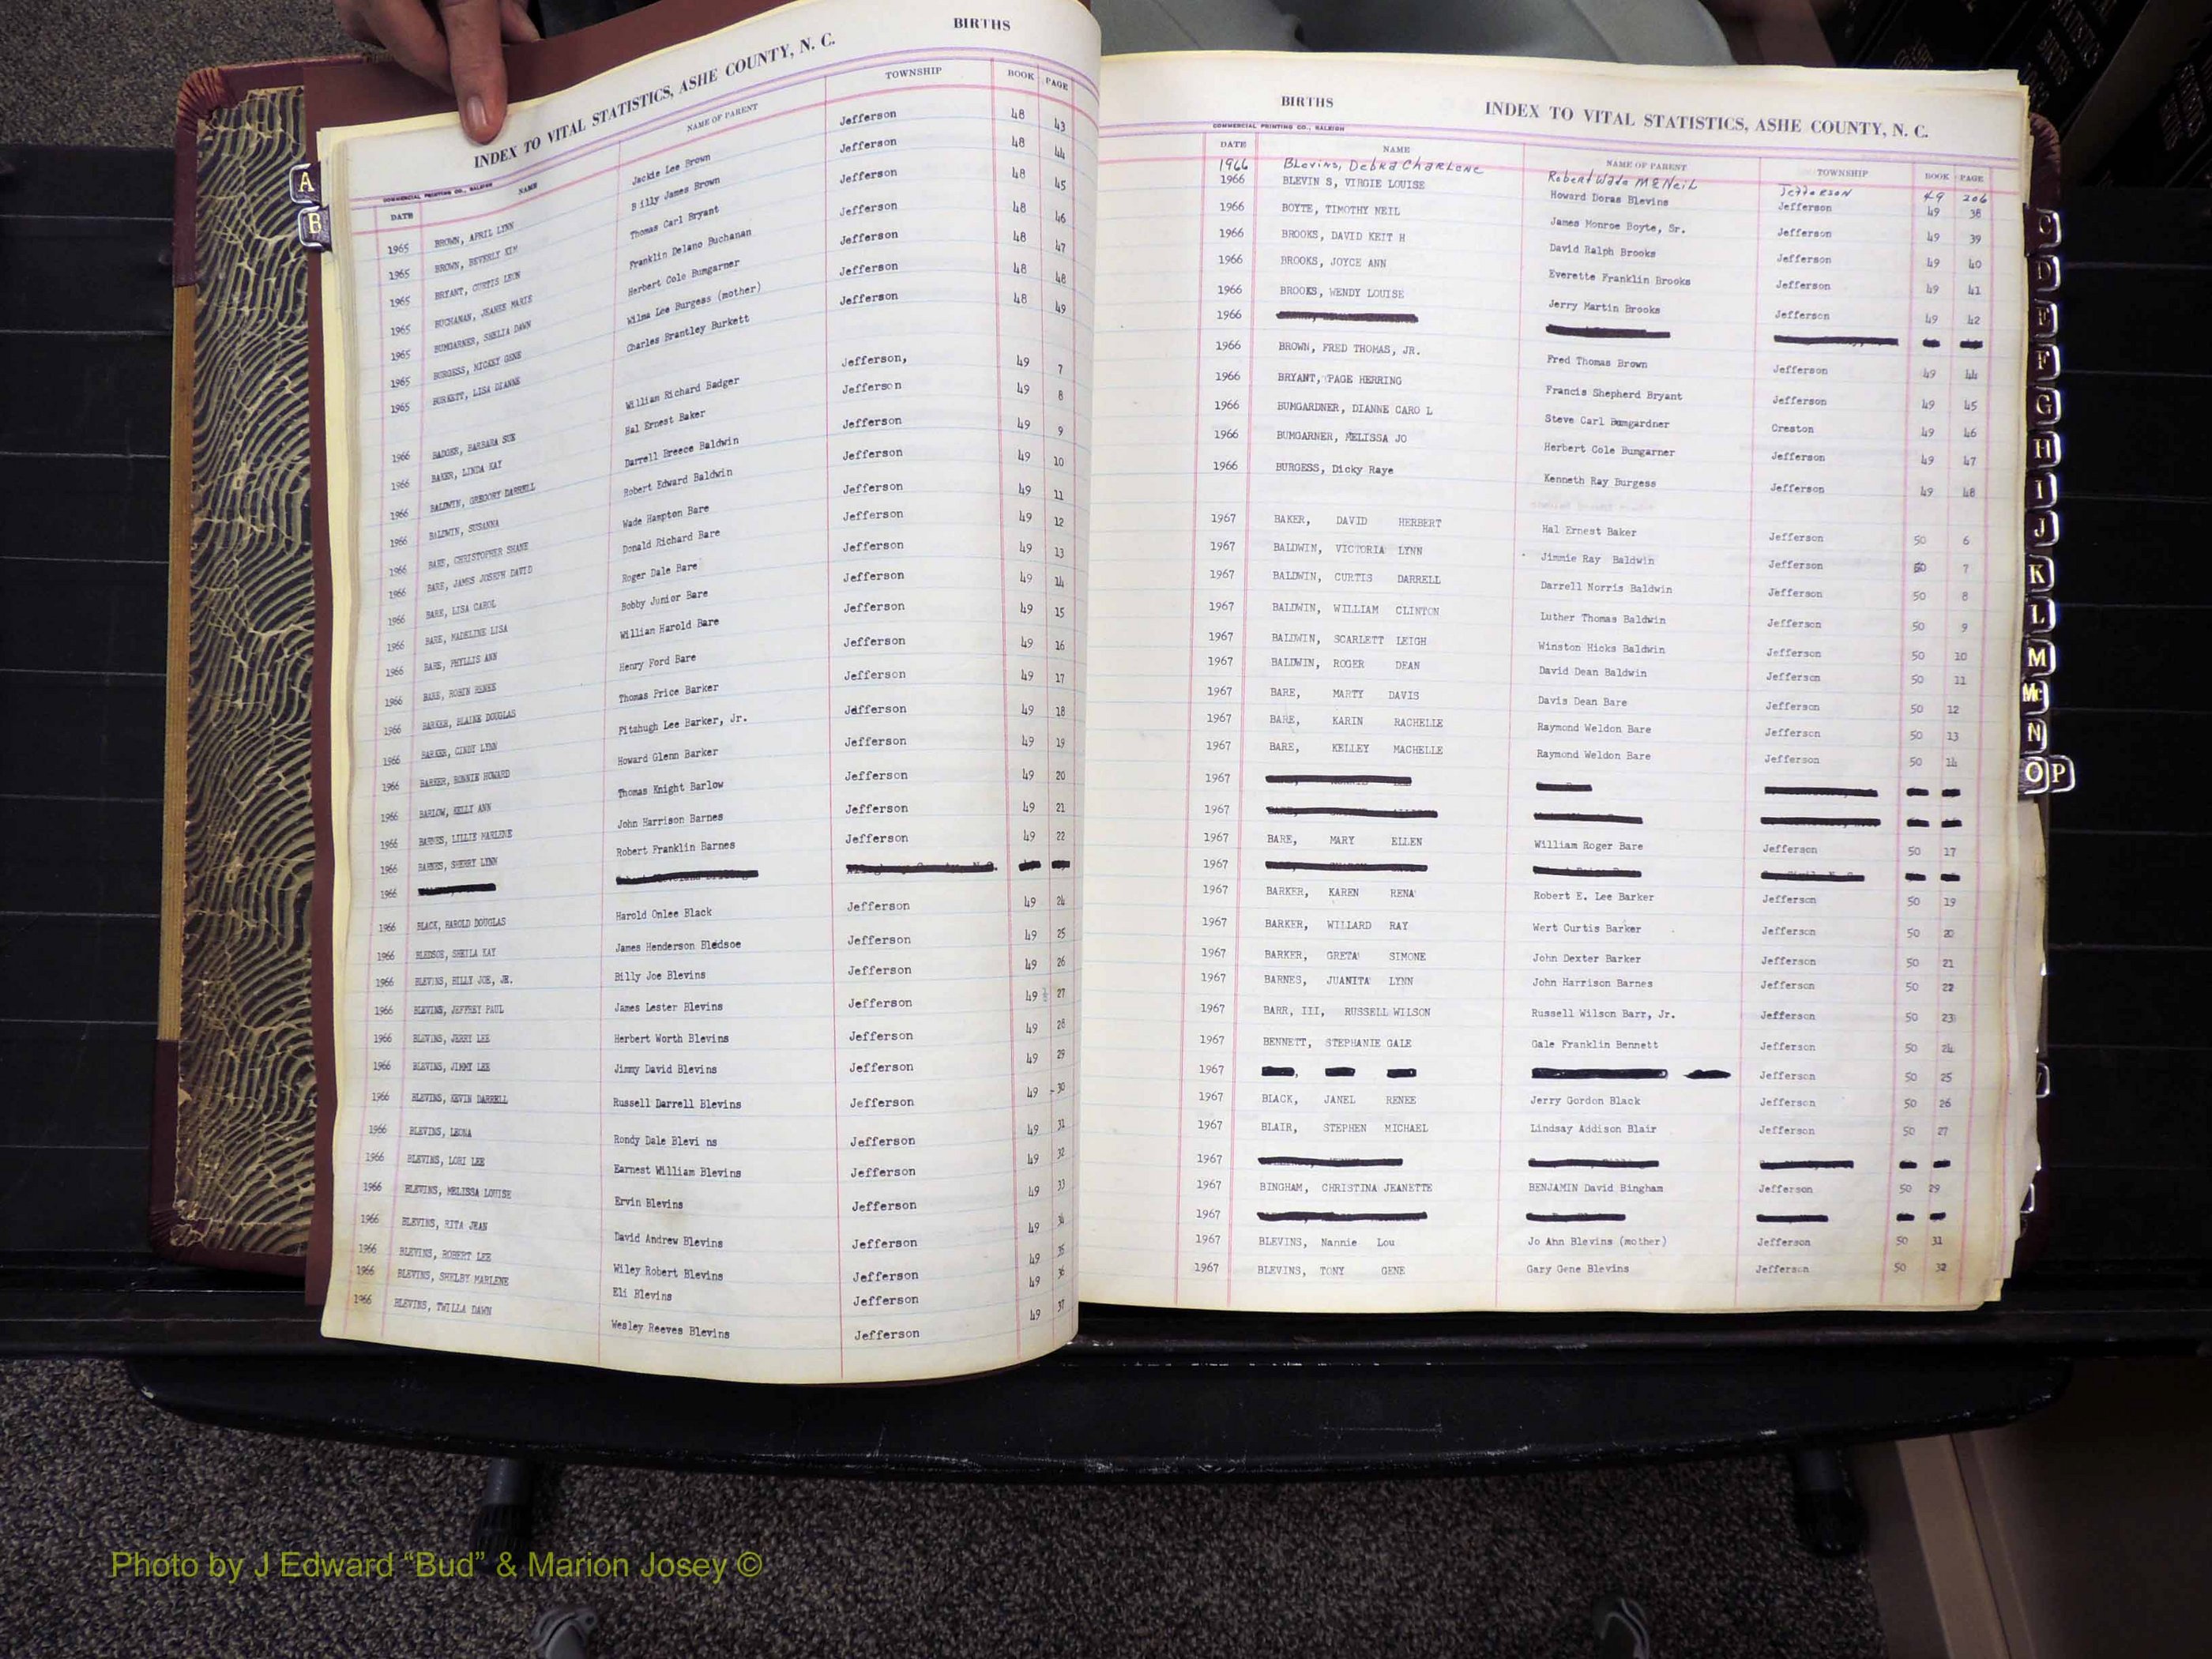 BIRTHS
INDEX TO VITAL STATISTICS, ASHE COUNTY, N. C.
COMMERCIAL PRINTING CO., RALEIGH
DATE NAME NAME OF PARENT TOWNSHIP BOOK PAGE
1965 BROWN, APRIL LYNN Jackie Lee Brown Jefferson 48 43
1965 BROWN, BEVERLY KIM Billy James Brown Jefferson 48 44
1965 BRYANT, CURTIS LEON Thomas Carl Bryant Jefferson 48 45
1965 BUCHANAN, JEANEE MARIE Franklin Delano Buchanan Jefferson 48 46
1965 BUMGARNER, SHELIA DAWN Herbert Cole Bumgarner Jefferson 48 47
1965 BURGESS, MICKEY GENE Wilma Lee Burgess (mother) Jefferson 48 48
1965 BURKETT, LISA DIANNE Charles Brantley Burkett Jefferson 48 49
1966 BADGER, BARBARA SUE William Richard Badger Jefferson, 49 7
1966 BAKER, LINDA KAY Hal Ernest Baker Jefferson 49 8
1966 BALDWIN, GREGORY DARRELL Darrell Breece Baldwin Jefferson 49 9
1966 BALDWIN, SUSANNA Robert Edward Baldwin Jefferson 49 10
1966 BARE, CHRISTOPHER SHANE Wade Hampton Bare Jefferson 49 11
1966 BARE, JAMES JOSEPH DAVID Donald Richard Bare Jefferson 49 12
1966 BARE, LISA CAROL Roger Dale Bare Jefferson 49 13
1966 BARE, MADELINE LISA Bobby Junior Bare Jefferson 49 14
1966 BARE, PHYLLIS ANN Willian Harold Bare Jefferson 49 15
1966 BARE, ROBIN RENEE Henry Ford Bare Jefferson 49 16
1966 BARKER, BLAINE DOUGLAS Thomas Price Barker Jefferson 49 17
1966 BARKER, CINDY LYNN Fitzhugh Lee Barker, Jr. Jefferson 49 18
1966 BARKER, RONNIE HOWARD Howard Glenn Barker Jefferson 49 19
1966 BARLOW, KELLY ANN Thomas Knight Barlow Jefferson 49 20
1966 BARNES, LILLIE MARLENE John Harrison Barnes Jefferson 49 21
1966 BARNES, SHERRY LYNN Robert Franklin Barnes Jefferson 49 22
1966
1966 BLACK, HAROLD DOUGLAS Harold Onlee Black Jefferson 49 24
1966 BLEDSOE, SHEILA KAY James Henderson Bledsoe Jefferson 49 25
1966 BLEVINS, BILLY JOE, JR. Billy Joe Blevins Jefferson 49 26
1966 BLEVINS, JEFFREY PAUL James Lester Blevins Jefferson 49 27
1966 BLEVINS, JERRY LEE Herbert Worth Blevins Jefferson 49 28
1966 BLEVINS, JIMMY LEE Jimmy David Blevins Jefferson 49 29
1966 BLEVINS, KEVIN DARRELL Russell Darrell Blevins Jefferson 49 30
1966 BLEVINS, LEONA Rondy Dale Blevi ns Jefferson 49 31
1966 BLEVINS, LORI LEE Earnest William Blevins Jefferson 49 32
1966 BLEVINS, MELISSA LOUISE Ervin Blevins Jefferson 49 33
1966 BLEVINS, RITA JEAN David Andrew Blevins Jefferson 49 34
1966 BLEVINS, ROBERT LEE Wiley Robert Blevins Jefferson 49 35
1966 BLEVINS, SHELBY MARLENE Eli Blevins Jefferson 49 36
1966 BLEVINS, TWILLA DAWN Wesley Reeves Blevins Jefferson 49 37
A
B
BIRTHS
INDEX TO VITAL STATISTICS, ASHE COUNTY, N. C.
COMMERCIAL PRINTING CO., RALEIGH
DATE NAME NAME OF PARENT TOWNSHIP BOOK PAGE
1966 Blevins, Debra Charlene Robert Wade McNeil Jefferson 49 206
1966 BLEVIN S, VIRGIE LOUISE Howard Doras Blevins Jefferson 49 38
1966 BOYTE, TIMOTHY NEIL James Monroe Boyte, Sr. Jefferson 49 39
1966 BROOKS, DAVID KEIT H David Ralph Brooks Jefferson 49 40
1966 BROOKS, JOYCE ANN Everette Franklin Brooks Jefferson 49 41
1966 BROOKS, WENDY LOUISE Jerry Martin Brooks Jefferson 49 42
1966
1966 BROWN, FRED THOMAS, JR. Fred Thomas Brown Jefferson 49 44
1966 BRYANT, PAGE HERRING Francis Shepherd Bryant Jefferson 49 45
1966 BUMGARDNER, DIANNE CARO L Steve Carl Bumgardner Creston 49 46
1966 BUMGARNER, MELISSA JO Herbert Cole Bumgarner Jefferson 49 47
1966 BURGESS, Dicky Raye Kenneth Ray Burgess Jefferson 49 48
1967 BAKER, DAVID HERBERT Hal Ernest Baker Jefferson 50 6
1967 BALDWIN, VICTORIA LYNN Jimmie Ray Baldwin Jefferson 50 7
1967 BALDWIN, CURTIS DARRELL Darrell Norris Baldwin Jefferson 50 8
1967 BALDWIN, WILLIAM CLINTON Luther Thomas Baldwin Jefferson 50 9
1967 BALDWIN, SCARLETT LEIGH Winston Hicks Baldwin Jefferson 50 10
1967 BALDWIN, ROGER DEAN David Dean Baldwin Jefferson 50 11
1967 BARE, MARTY DAVIS Davis Dean Bare Jefferson 50 12
1967 BARE, KARIN RACHELLE Raymond Weldon Bare Jefferson 50 13
1967 BARE, KELLEY MACHELLE Raymond Weldon Bare Jefferson 50 14
1967
1967
1967 BARE, MARY ELLEN William Roger Bare Jefferson 50 17
1967
1967 BARKER, KAREN RENA Robert E. Lee Barker Jefferson 50 19
1967 BARKER, WILLARD RAY Wert Curtis Barker Jefferson 50 20
1967 BARKER, GRETA SIMONE John Dexter Barker Jefferson 50 21
1967 BARNES, JUANITA LYNN John Harrison Barnes Jefferson 50 22
1967 BARR, III, RUSSELL WILSON Russell Wilson Barr, Jr. Jefferson 50 23
1967 BENNETT, STEPHANIE GALE Gale Franklin Bennett Jefferson 50 24
1967 Jefferson 50 25
1967 BLACK, JANEL RENEE Jerry Gordon Black Jefferson 50 26
1967 BLAIR, STEPHEN MICHAEL Lindsay Addison Blair Jefferson 50 27
1967
1967 BINGHAM, CHRISTINA JEANETTE BENJAMIN David Bingham Jefferson 50 29
1967
1967 BLEVINS, Nannie Lou Jo Ahn Blevins (mother) Jefferson 50 31
1967 BLEVINS, TONY GENE Gary Gene Blevins Jefferson 50 32
C
D
E
F
G
H
I
J
K
L
M
Mc
N
O P
Photo by J Edward “Bud” & Marion Josey ©